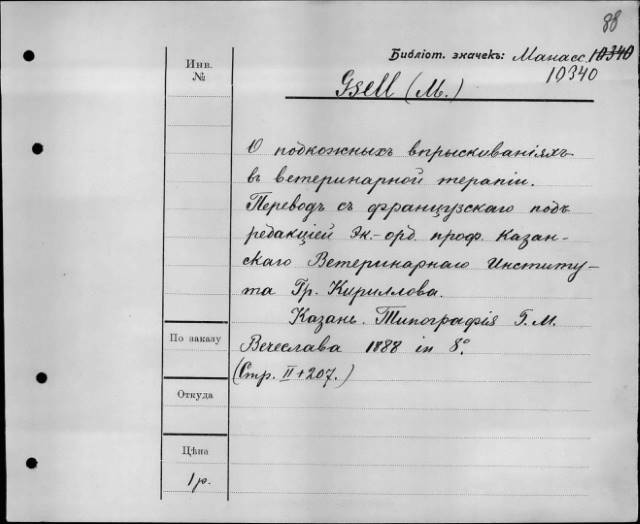 88
Библіот. значекъ: Манасс. 10340
10340
Gsell (M.)
Инв.
№
О подкожныхъ впрыскиваніяхъ
въ ветеринарной терапіи.
Переводъ съ французскаго подъ
редакціей Эк.-орд. проф. Казан-
скаго Ветеринарнаго Институ-
та Гр. Кириллова.
Казань. Типографія Г. М.
Вечеслава 1888 in 8°.
(Стр. II + 207.)
По заказу
Откуда
Цѣна
1 р.